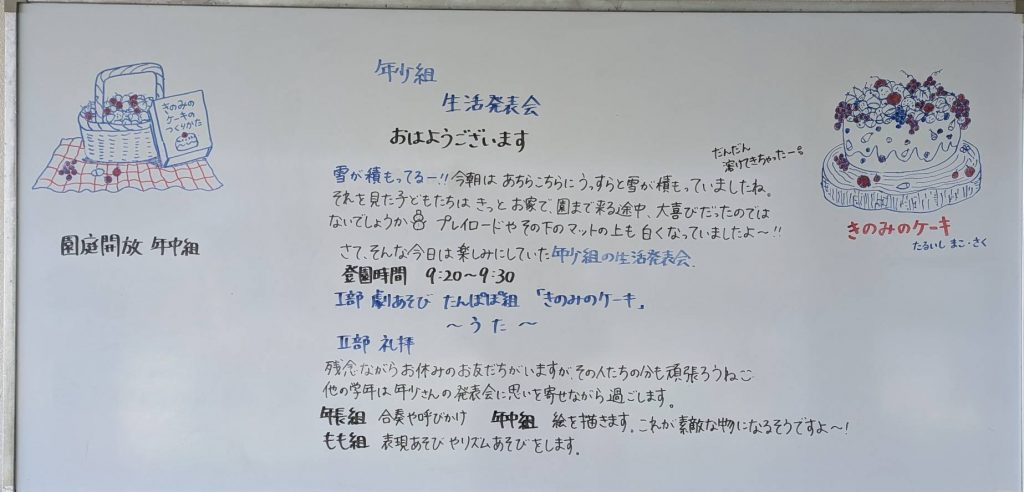 きのみの
ケーキの
つくりかた
園庭開放 年中組
年少組
生活発表会
おはようございます
だんだん
溶けてきちゃったー。
雪が積もってるー!! 今朝は あちらこちらに うっすらと雪が積もっていましたね。
それを見た子どもたちは きっと お家で、園まで来る途中、大喜びだったのでは
ないでしょうか プレイロードや その下のマットの上も 白くなっていましたよ〜!!
さて、そんな今日は 楽しみにしていた 年少組の生活発表会.
登園時間 9:20〜9:30
I部 劇あそび たんぽぽ組 「きのみのケーキ」
〜うた〜
II部 礼拝
残念ながらお休みのお友だちがいますが、その人たちの分も頑張ろうね
他の学年は 年少さんの 発表会に思いを寄せながら 過ごします。
年長組 合奏や呼びかけ 年中組 絵を描きます。これが素敵な物になるそうですよ〜!
もも組 表現あそび やリズムあそびをします。
きのみのケーキ
たるいし まこ・さく